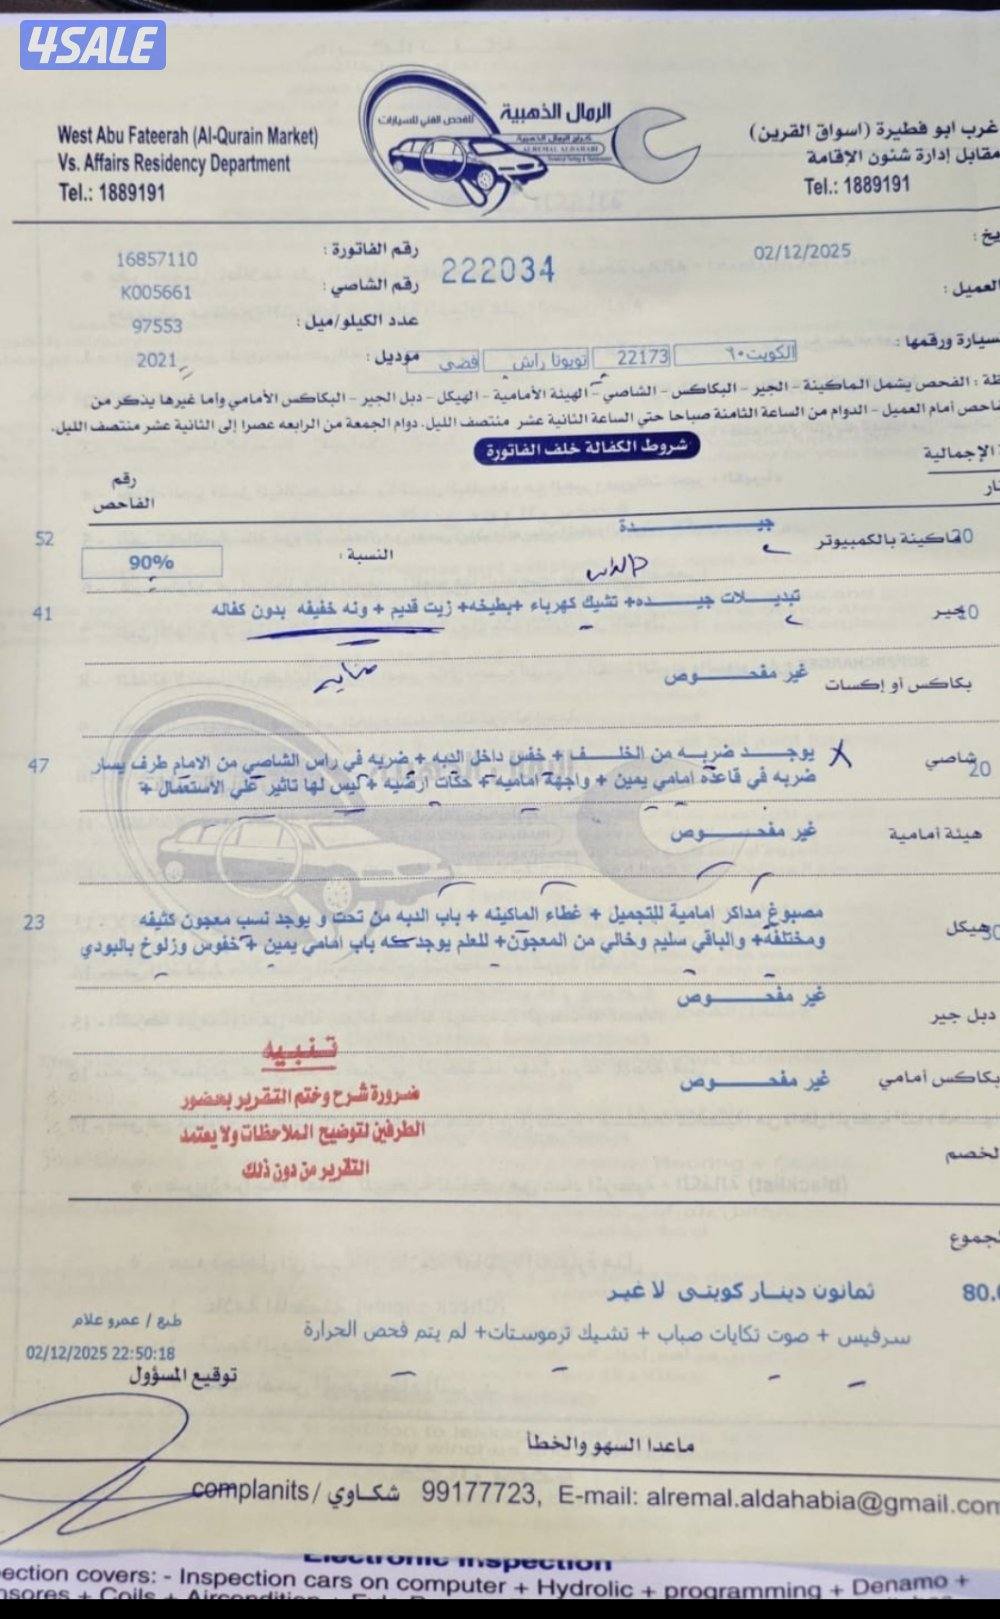 4SALE
الرمال الذهبية
للفحص الفني للسيارات
كراج الرمال الذهبية
AL REMAL ALDAHABI
West Abu Fateerah (Al-Qurain Market)
Vs. Affairs Residency Department
Tel.: 1889191
غرب ابو فطيرة (اسواق القرين)
مقابل إدارة شئون الإقامة
Tel.: 1889191
02/12/2025
222034
رقم الفاتورة : 16857110
العميل :
رقم الشاصي : K005661
عدد الكيلو/ميل : 97553
سيارة ورقمها : الكويت ٩٠ 22173 تويوتا راش فضي
موديل : 2021
الفحص يشمل الماكينة - الجير - البكاكس - الشاصي - الهيئة الأمامية - الهيكل - دبل الجير - البكاكس الأمامي وأما غيرها يذكر من
أمام العميل - الدوام من الساعة الثامنة صباحا حتي الساعة الثانية عشر منتصف الليل. دوام الجمعة من الرابعه عصرا إلى الثانية عشر منتصف الليل.
شروط الكفالة خلف الفاتورة
الإجمالية
رقم الفاحص
ماكينة بالكمبيوتر جيــــدة 52
النسبة : 90%
جير تبديــلات جيــده+ تشيك كهرباء +بطيخه+ زيت قديم + ونه خفيفه بدون كفاله 41
بكاكس أو إكسات غير مفحــــوص
شاصي 20 يوجــد ضربه من الخلــف + خفس داخل الدبه + ضربه في راس الشاصي من الامام طرف يسار 47
ضربه في قاعده امامي يمين + واجهة اماميه + حكات ارضيه + ليس لها تاثير علي الأستعمال +
هيئة أمامية غير مفحــــوص
هيكل مصبوغ مداكر امامية للتجميل + غطاء الماكينه + باب الدبه من تحت و يوجد نسب معجون كثيفه 23
ومختلفة+ والباقي سليم وخالي من المعجون+ للعلم يوجد حكه باب امامي يمين + خفوس وزلوخ بالبودي
دبل جير غير مفحــــوص
بكاكس أمامي غير مفحــــوص
تنبيه
ضرورة شرح وختم التقرير بحضور
الطرفين لتوضيح الملاحظات ولا يعتمد
التقرير من دون ذلك
ثمانون دينــار كويتي لا غير
سرفيس + صوت تكايات صباب + تشيك ترموستات+ لم يتم فحص الحرارة
طبع / عمرو علام
02/12/2025 22:50:18
توقيع المسؤول
ماعدا السهو والخطأ
complanits / شكاوي 99177723, E-mail: alremal.aldahabia@gmail.com
Electronic Inspection
covers: - Inspection cars on computer + Hydrolic + programming + Denamo +